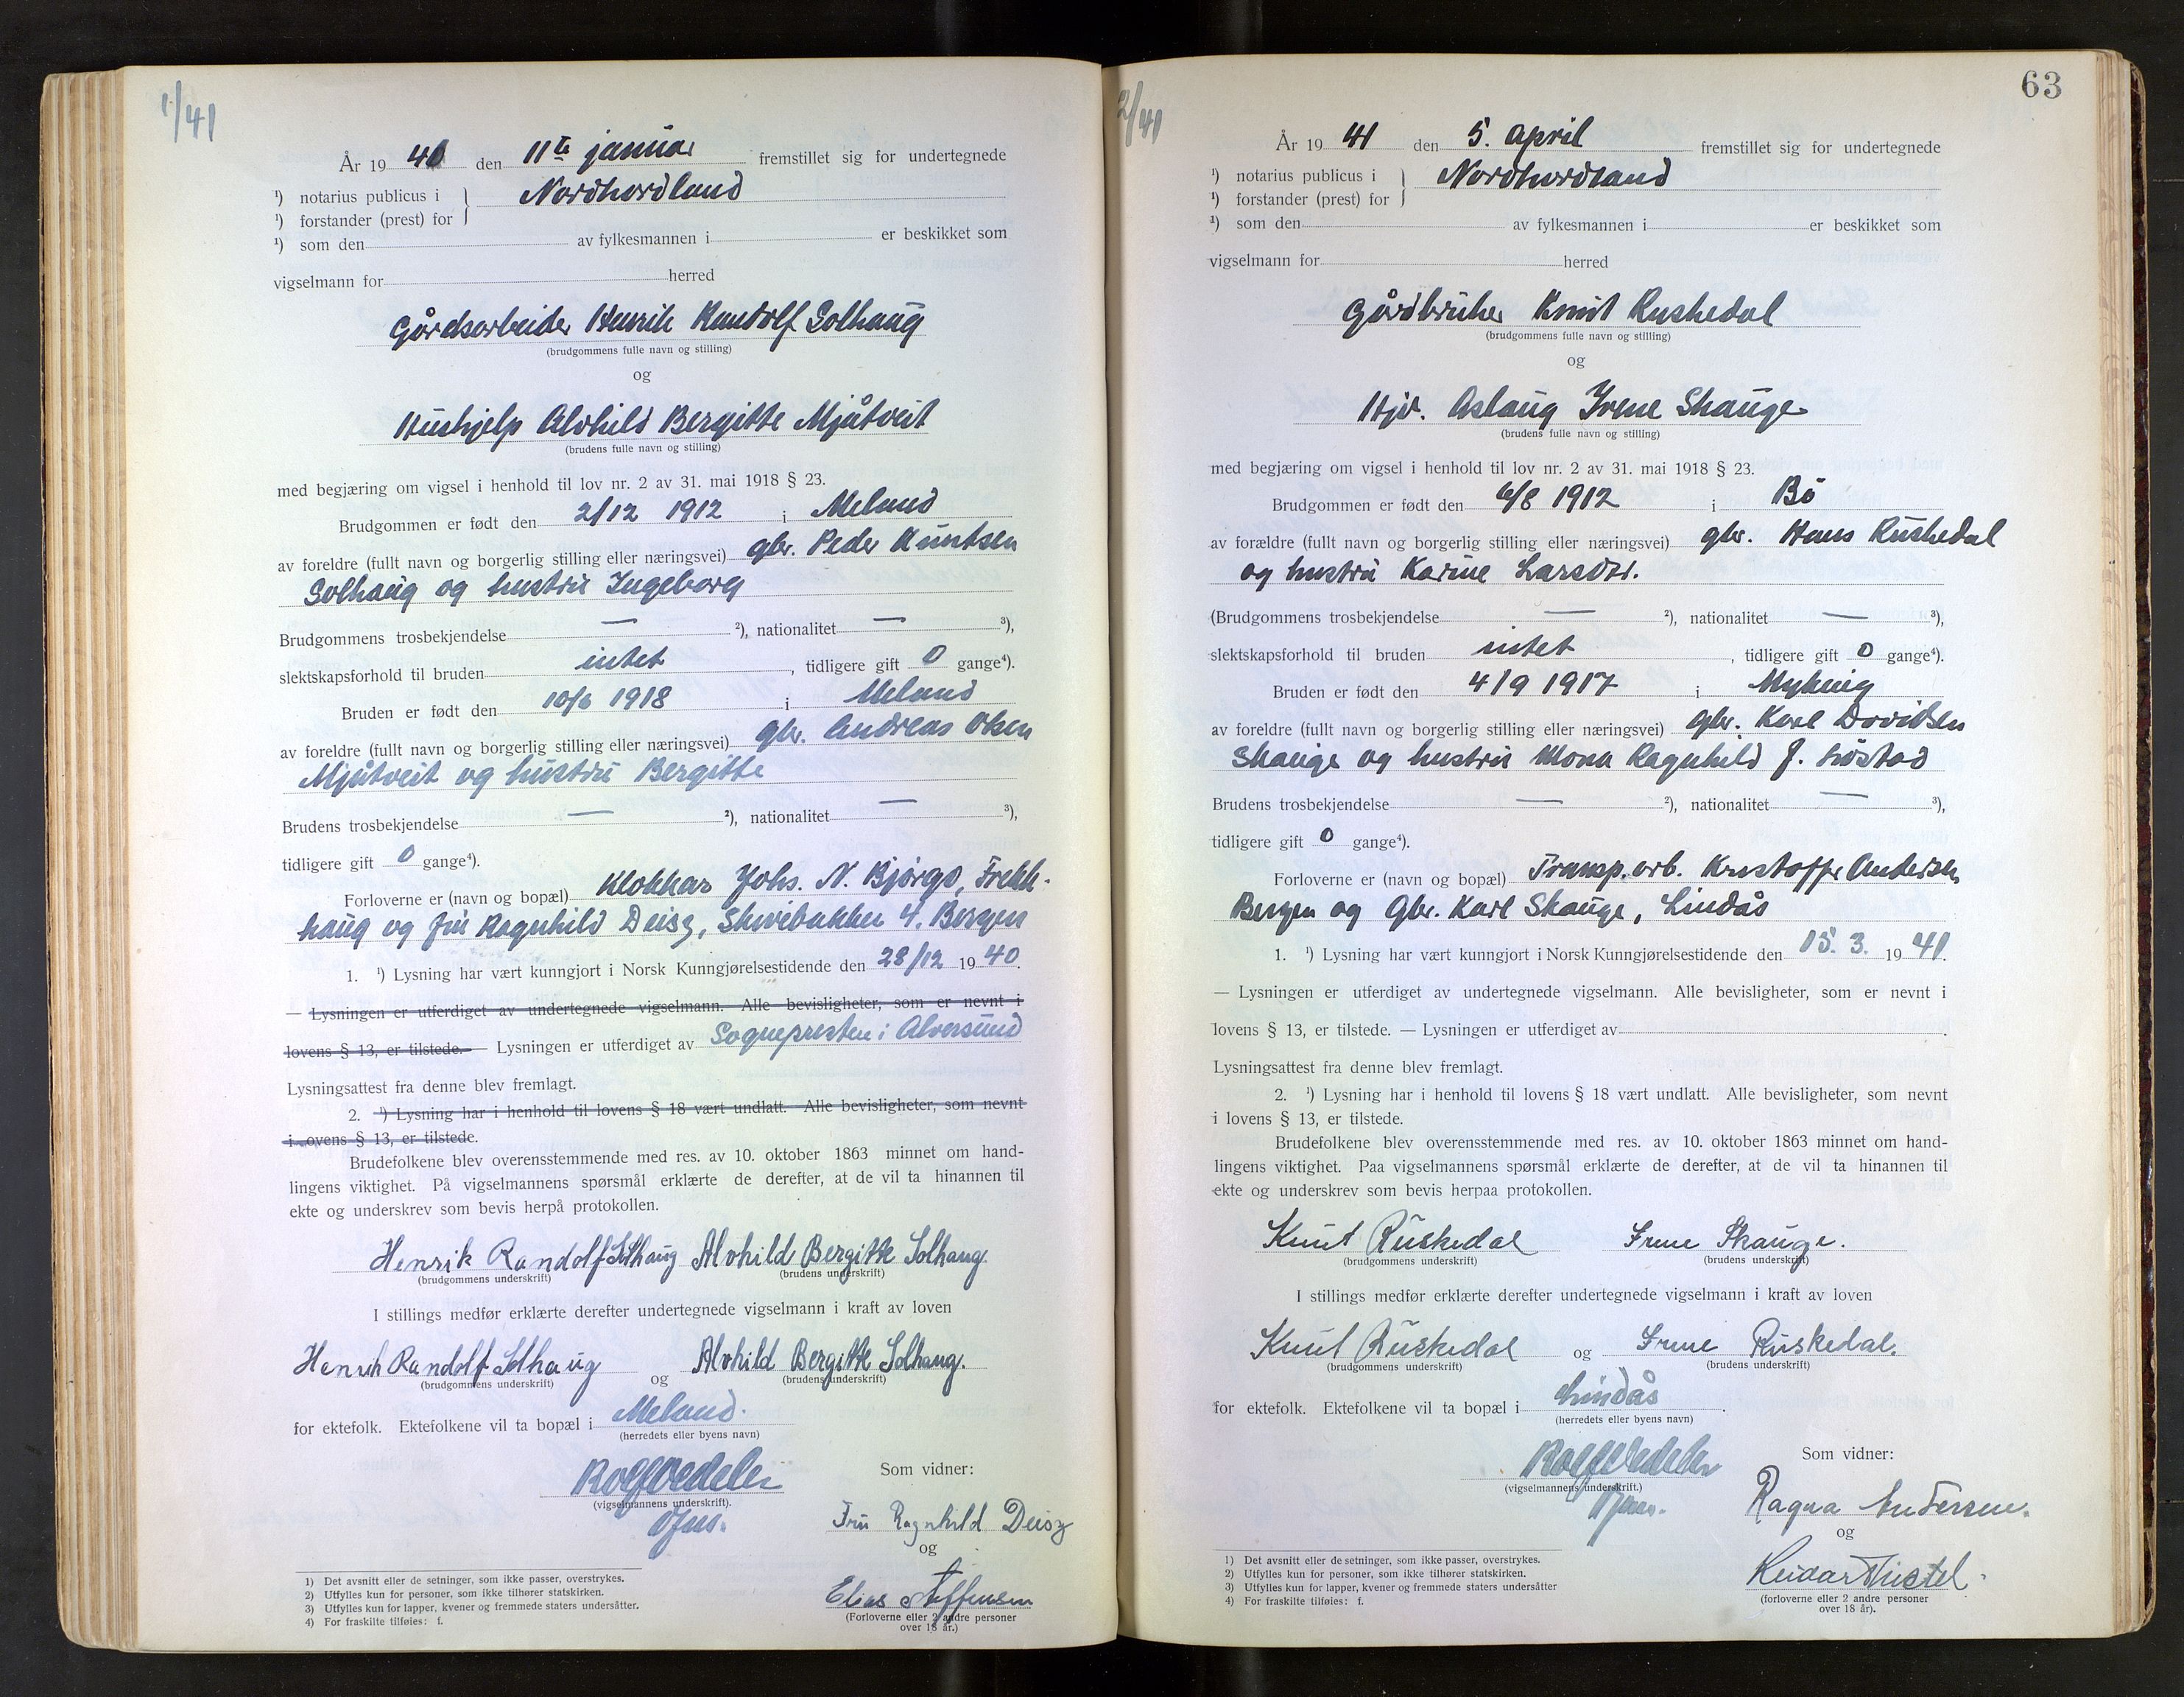 1/41
År 19 41 den 11te januar fremstillet sig for undertegnede
¹) notarius publicus i } Nordhordland
¹) forstander (prest) for
¹) som den av fylkesmannen i er beskikket som
vigselmann for herred
Gårdsarbeider Henrik Randolf Solhaug
(brudgommens fulle navn og stilling)
og
Hushjelp Alvhild Bergitte Mjåtveit
(brudens fulle navn og stilling)
med begjæring om vigsel i henhold til lov nr. 2 av 31. mai 1918 § 23.
Brudgommen er født den 2/12 1912 i Meland
av foreldre (fullt navn og borgerlig stilling eller næringsvei) gbr. Peder Knutsen
Solhaug og hustru Ingeborg
Brudgommens trosbekjendelse — ²), nationalitet — ³),
slektskapsforhold til bruden intet, tidligere gift 0 gange⁴).
Bruden er født den 10/6 1918 i Meland
av foreldre (fullt navn og borgerlig stilling eller næringsvei) gbr. Andreas Olsen
Mjåtveit og hustru Bergitte
Brudens trosbekjendelse — ²), nationalitet — ³),
tidligere gift 0 gange⁴).
Forloverne er (navn og bopæl) Klokkar Johs. N. Bjørgo, Frekk-
haug og fru Ragnhild Deisz, Skivebakken 4. Bergen
1. ¹) Lysning har vært kunngjort i Norsk Kunngjørelsestidende den 28/12 19 40.
— Lysningen er utferdiget av undertegnede vigselmann. Alle bevisligheter, som er nevnt i
lovens § 13, er tilstede. — Lysningen er utferdiget av Sognepresten i Alversund
Lysningsattest fra denne blev fremlagt.
2. ¹) Lysning har i henhold til lovens § 18 vært undlatt. Alle bevisligheter, som nevnt
i lovens § 13, er tilstede.
Brudefolkene blev overensstemmende med res. av 10. oktober 1863 minnet om hand-
lingens viktighet. På vigselmannens spørsmål erklærte de derefter, at de vil ta hinannen til
ekte og underskrev som bevis herpå protokollen.
Henrik Randolf Solhaug Alvhild Bergitte Solhaug.
(brudgommens underskrift) (brudens underskrift)
I stillings medfør erklærte derefter undertegnede vigselmann i kraft av loven
Henrik Randolf Solhaug og Alvhild Bergitte Solhaug.
(brudgommens underskrift) (brudens underskrift)
for ektefolk. Ektefolkene vil ta bopæl i Meland.
(herredets eller byens navn)
Rolf Vedeler
(vigselmannens underskrift).
Som vidner:
Fru Ragnhild Deisz
og
Elias Steffensen
(Forloverne eller 2 andre personer
over 18 år.)
1) Det avsnitt eller de setninger, som ikke passer, overstrykes.
2) Utfylles kun for personer, som ikke tilhører statskirken.
3) Utfylles kun for lapper, kvener og fremmede staters undersåtter.
4) For fraskilte tilføies: f.
63
2/41
År 19 41 den 5. april fremstillet sig for undertegnede
¹) notarius publicus i } Nordhordland
¹) forstander (prest) for
¹) som den av fylkesmannen i er beskikket som
vigselmann for herred
Gårdbruker Knut Ruskedal
(brudgommens fulle navn og stilling)
og
Hjv. Aslaug Irene Skauge
(brudens fulle navn og stilling)
med begjæring om vigsel i henhold til lov nr. 2 av 31. mai 1918 § 23.
Brudgommen er født den 6/8 1912 i Bø
av forældre (fullt navn og borgerlig stilling eller næringsvei) gbr. Hans Ruskedal
og hustru Karine Larsdtr.
(Brudgommens trosbekjendelse — ²), nationalitet — ³),
slektskapsforhold til bruden intet, tidligere gift 0 gange⁴).
Bruden er født den 4/9 1917 i Myking
av foreldre (fullt navn og borgerlig stilling eller næringsvei) gbr. Karl Davidsen
Skauge og hustru Mona Ragnhild J.
Brudens trosbekjendelse — ²), nationalitet — ³),
tidligere gift 0 gange⁴).
Forloverne er (navn og bopæl) Transp.arb. Kristoffer Andersen
Bergen og Gbr. Karl Skauge, Lindås
1. ¹) Lysning har vært kunngjort i Norsk Kunngjørelsestidende den 15. 3. 19 41.
— Lysningen er utferdiget av undertegnede vigselmann. Alle bevisligheter, som er nevnt i
lovens § 13, er tilstede. — Lysningen er utferdiget av
Lysningsattest fra denne blev fremlagt.
2. ¹) Lysning har i henhold til lovens § 18 vært undlatt. Alle bevisligheter, som nevnt
i lovens § 13, er tilstede.
Brudefolkene blev overensstemmende med res. av 10. oktober 1863 minnet om hand-
lingens viktighet. Paa vigselmannens spørsmål erklærte de derefter, at de vil ta hinannen til
ekte og underskrev som bevis herpaa protokollen.
Knut Ruskedal Irene Skauge.
(brudgommens underskrift) (brudens underskrift)
I stillings medfør erklærte derefter undertegnede vigselmann i kraft av loven
Knut Ruskedal og Irene Ruskedal.
(brudgommens underskrift) (brudens underskrift)
for ektefolk. Ektefolkene vil ta bopæl i Lindås.
(herredets eller byens navn)
Rolf Vedeler
(vigselmannens underskrift.)
Som vidner:
Ragna Andersen.
og
Reidar Thistel.
(forloverne eller 2 andre personer
over 18 år).
1) Det avsnitt eller de setninger, som ikke passer, overstrykes.
2) Utfylles kun for personer, som ikke tilhører statskirken.
3) Utfylles kun for lapper, kvener og fremmede staters undersåtter
4) For fraskilte tilføies: f.